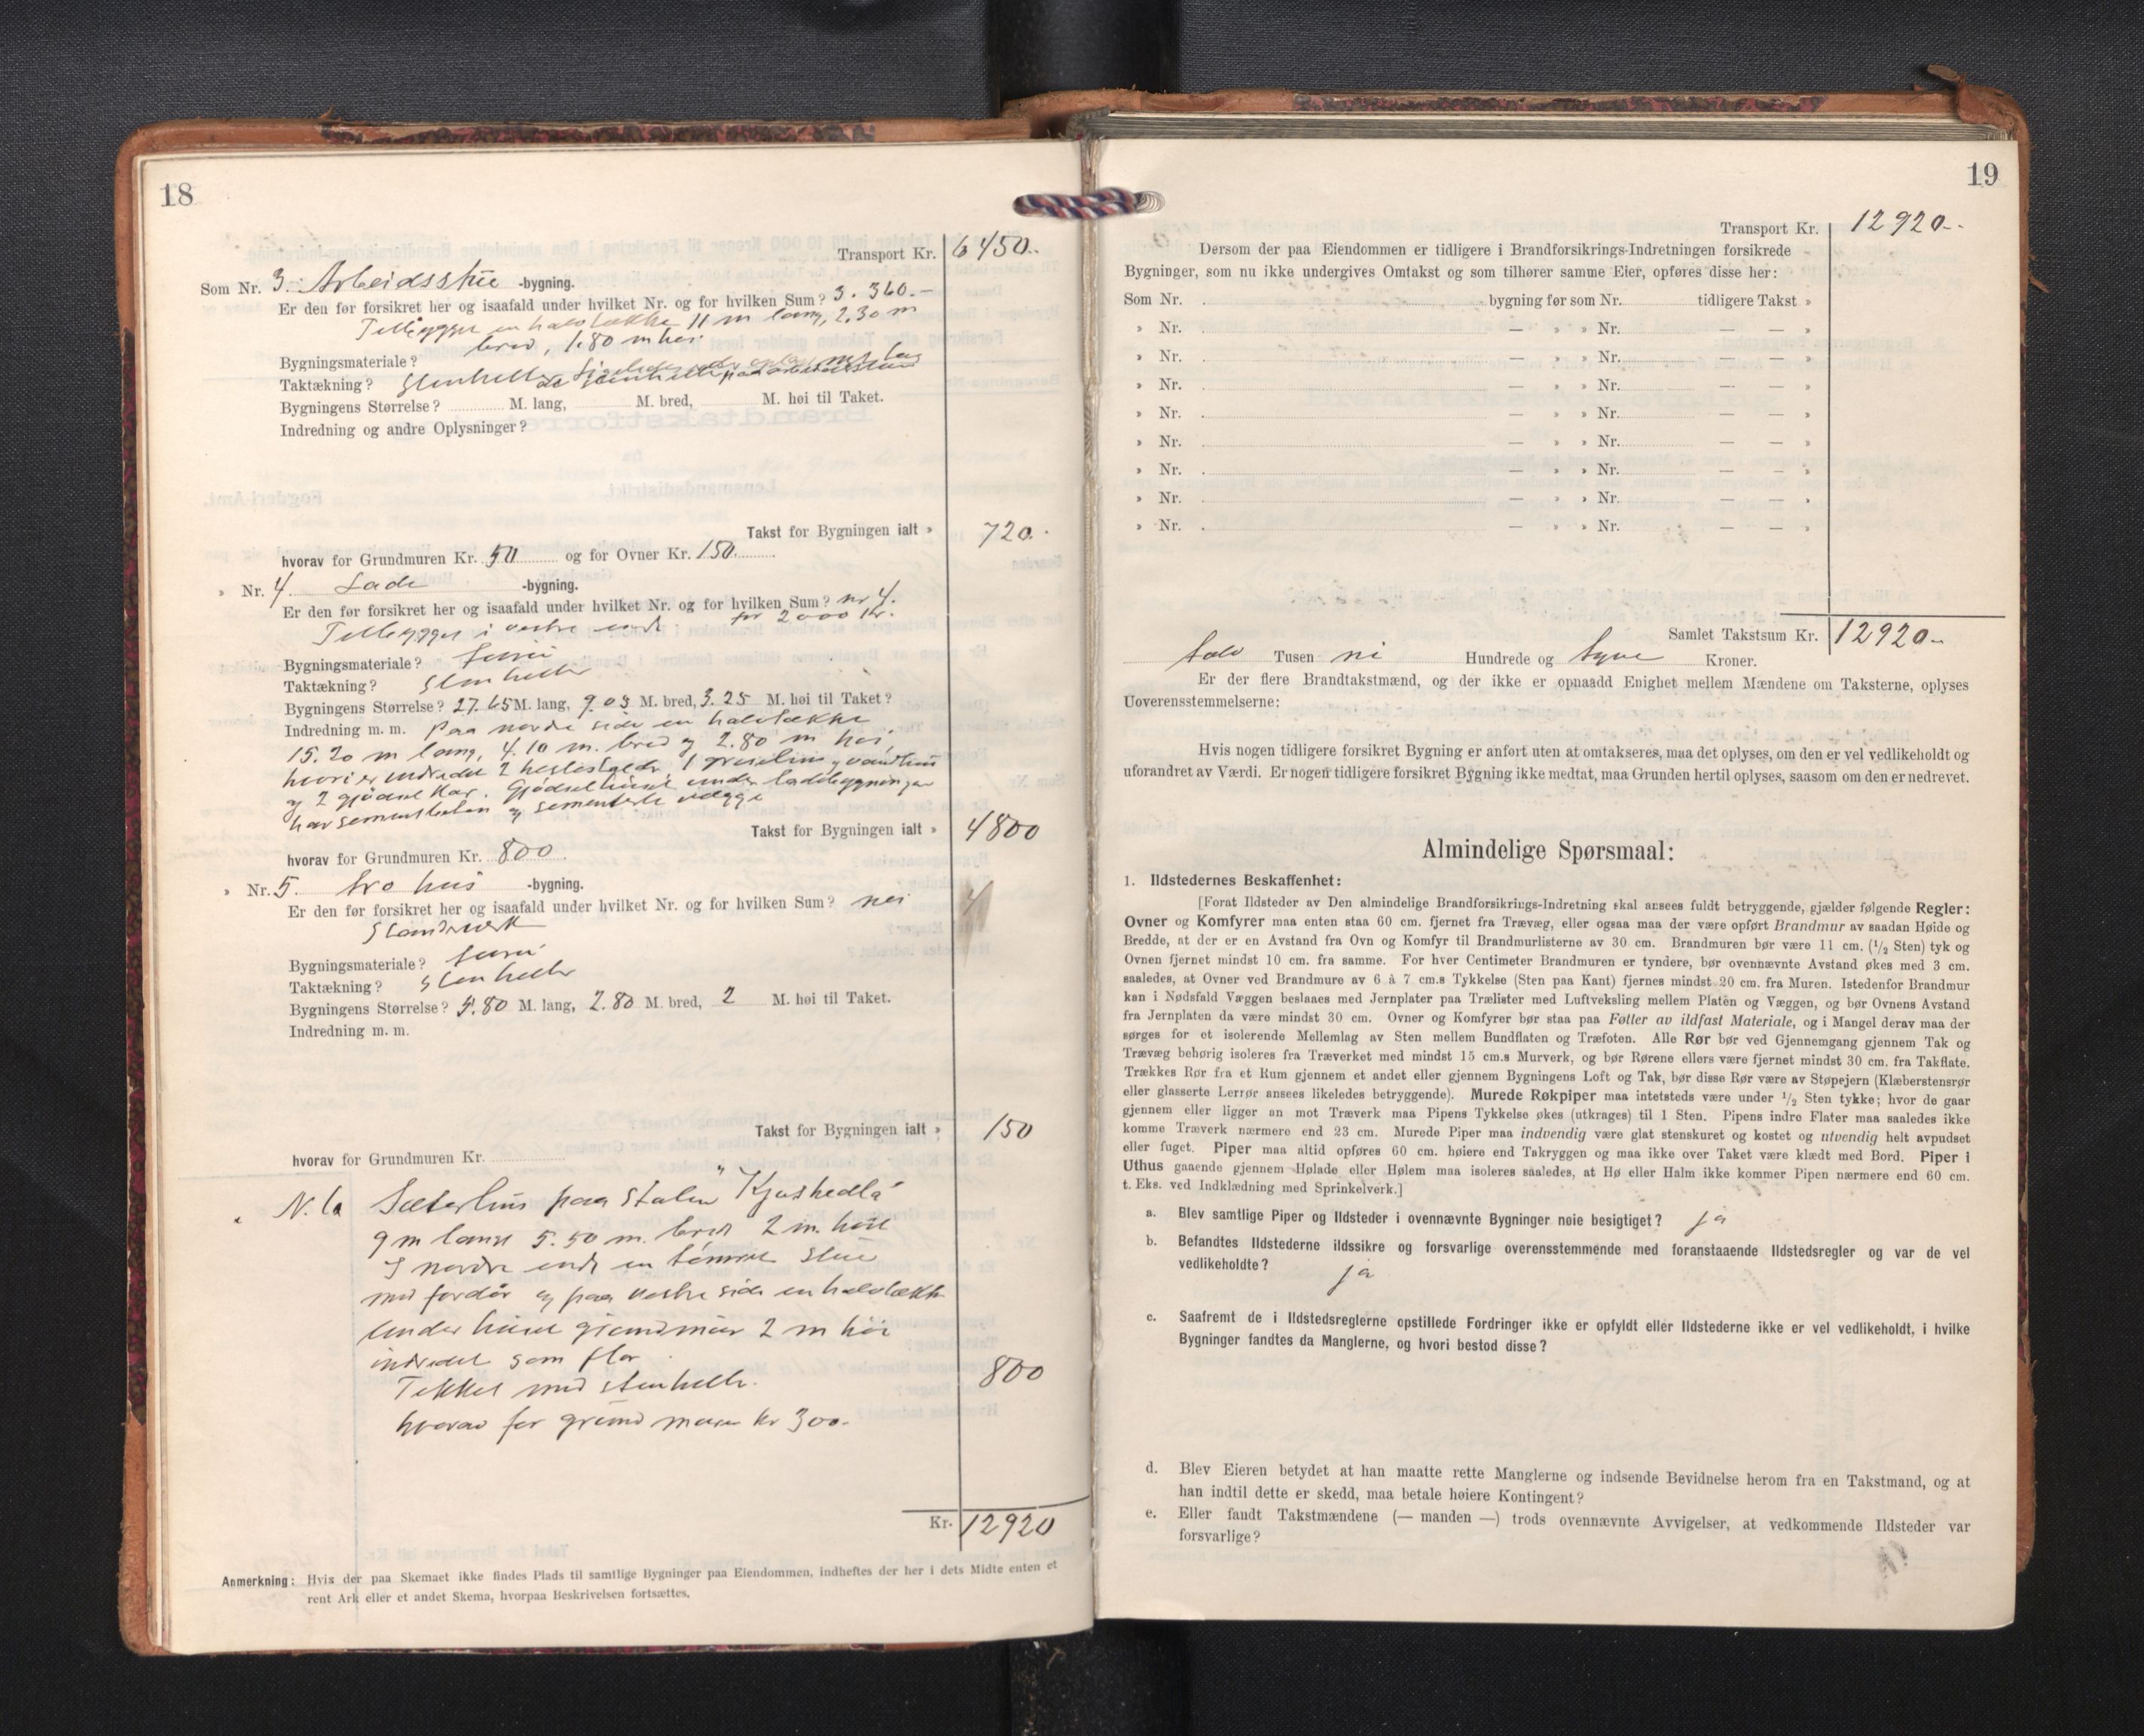 18
Transport Kr. 6450.-
Som Nr. 3. Arbeidsstue -bygning.
Er den før forsikret her og isaafald under hvilket Nr. og for hvilken Sum? 3. 360.-
Tilbygget en halvtække 11 m lang, 2,30 m
bred, 1.80 m høi
Bygningsmateriale?
Taktækning? Stenheller
Bygningens Størrelse? M. lang, M. bred, M. høi til Taket.
Indredning og andre Oplysninger?
Takst for Bygningen ialt » 720.-
hvorav for Grundmuren Kr. 50 og for Ovner Kr. 150
» Nr. 4. Lade -bygning.
Er den før forsikret her og isaafald under hvilket Nr. og for hvilken Sum? nr 4.
Tilbygget i vestre ende for 2000 Kr.
Bygningsmateriale? furu
Taktækning? Stenheller
Bygningens Størrelse? 27.65 M. lang, 9.03 M. bred, 3.25 M. høi til Taket?
Indredning m. m. Paa nordre side en halvtække
15.20 m lang, 4.10 m. bred og 2.80 m høi,
hvori er indredet 2 hestestalde 1 grisehus og vandhus
og 2 gjødsel kar. Gjødselhuset under ladebygningen
har sementsten og sementerte vægge
Takst for Bygningen ialt » 4800
hvorav for Grundmuren Kr. 800.
» Nr. 5. hus -bygning.
Er den før forsikret her og isaafald under hvilket Nr. og for hvilken Sum? nei
Standverk
Bygningsmateriale? furu
Taktækning? Stenheller
Bygningens Størrelse? 5.80 M. lang, 2.80 M. bred, 2 M. høi til Taket.
Indredning m. m.
Takst for Bygningen ialt » 150
hvorav for Grundmuren Kr.
» N. 6 Sæterhus paa stølen "Kjushedla"
9 m langt 5.50 m. bredt 2 m. høit
I nordre ende en tømret stue
med fordør og paa vestre side en halvtække
Under huset grundmur 2 m høi
indredet som flor.
Tekket med stenheller. 800
hvorav for grundmuren kr 300.-
Kr. 12920
Anmerkning: Hvis der paa Skemaet ikke findes Plads til samtlige Bygninger paa Eiendommen, indheftes der her i dets Midte enten et
rent Ark eller et andet Skema, hvorpaa Beskrivelsen fortsættes.
19
Transport Kr. 12920.-
Dersom der paa Eiendommen er tidligere i Brandforsikrings-Indretningen forsikrede
Bygninger, som nu ikke undergives Omtakst og som tilhører samme Eier, opføres disse her:
Som Nr. bygning før som Nr. tidligere Takst »
» Nr. — » » Nr. — — »
» Nr. — » » Nr. — — »
» Nr. — » » Nr. — — »
» Nr. — » » Nr. — — »
» Nr. — » » Nr. — — »
» Nr. — » » Nr. — — »
» Nr. — » » Nr. — — »
» Nr. — » » Nr. — — »
Samlet Takstsum Kr. 12920.-
tolv Tusen ni Hundrede og tyve Kroner.
Er der flere Brandtakstmænd, og der ikke er opnaadd Enighet mellem Mændene om Taksterne, oplyses
Uoverensstemmelserne:
Hvis nogen tidligere forsikret Bygning er anført uten at omtakseres, maa det oplyses, om den er vel vedlikeholdt og
uforandret av Værdi. Er nogen tidligere forsikret Bygning ikke medtat, maa Grunden hertil oplyses, saasom om den er nedrevet.
Almindelige Spørsmaal:
1. Ildstedernes Beskaffenhet:
[Forat Ildsteder av Den almindelige Brandforsikrings-Indretning skal ansees fuldt betryggende, gjælder følgende Regler:
Ovner og Komfyrer maa enten staa 60 cm. fjernet fra Trævæg, eller ogsaa maa der være opført Brandmur av saadan Høide og
Bredde, at der er en Avstand fra Ovn og Komfyr til Brandmurlisterne av 30 cm. Brandmuren bør være 11 cm. (1/2 Sten) tyk og
Ovnen fjernet mindst 10 cm. fra samme. For hver Centimeter Brandmuren er tyndere, bør ovennævnte Avstand økes med 3 cm.
saaledes, at Ovner ved Brandmure av 6 à 7 cm.s Tykkelse (Sten paa Kant) fjernes mindst 20 cm. fra Muren. Istedenfor Brandmur
kan i Nødsfald Væggen beslaaes med Jernplater paa Trælister med Luftveksling mellem Platen og Væggen, og bør Ovnens Avstand
fra Jernplaten da være mindst 30 cm. Ovner og Komfyrer bør staa paa Føtter av ildfast Materiale, og i Mangel derav maa der
sørges for et isolerende Mellemlag av Sten mellem Bundflaten og Træfoten. Alle Rør bør ved Gjennemgang gjennem Tak og
Trævæg behørig isoleres fra Træverket med mindst 15 cm.s Murverk, og bør Rørene ellers være fjernet mindst 30 cm. fra Takflate.
Trækkes Rør fra et Rum gjennem et andet eller gjennem Bygningens Loft og Tak, bør disse Rør være av Støpejern (Klæberstensrør
eller glasserte Lerrør ansees likeledes betryggende). Murede Røkpiper maa intetsteds være under 1/2 Sten tykke; hvor de gaar
gjennem eller ligger an mot Træverk maa Pipens Tykkelse økes (utkrages) til 1 Sten. Pipens indre Flater maa saaledes ikke
komme Træverk nærmere end 23 cm. Murede Piper maa indvendig være glat stenskuret og kostet og utvendig helt avpudset
eller fuget. Piper maa altid opføres 60 cm. høiere end Takryggen og maa ikke over Taket være klædt med Bord. Piper i
Uthus gaaende gjennem Hølade eller Hølem maa isoleres saaledes, at Hø eller Halm ikke kommer Pipen nærmere end 60 cm.
t. Eks. ved Indklædning med Sprinkelverk.]
a. Blev samtlige Piper og Ildsteder i ovennævnte Bygninger nøie besigtiget? ja
b. Befandtes Ildstederne ildssikre og forsvarlige overensstemmende med foranstaaende Ildstedsregler og var de vel
vedlikeholdte? ja
c. Saafremt de i Ildstedsreglerne opstillede Fordringer ikke er opfyldt eller Ildstederne ikke er vel vedlikeholdt, i hvilke
Bygninger fandtes da Manglerne, og hvori bestod disse?
d. Blev Eieren betydet at han maatte rette Manglerne og indsende Bevidnelse herom fra en Takstmand, og at
han indtil dette er skedd, maa betale høiere Kontingent?
e. Eller fandt Takstmændene (— manden —) trods ovennævnte Avvigelser, at vedkommende Ildsteder var
forsvarlige?